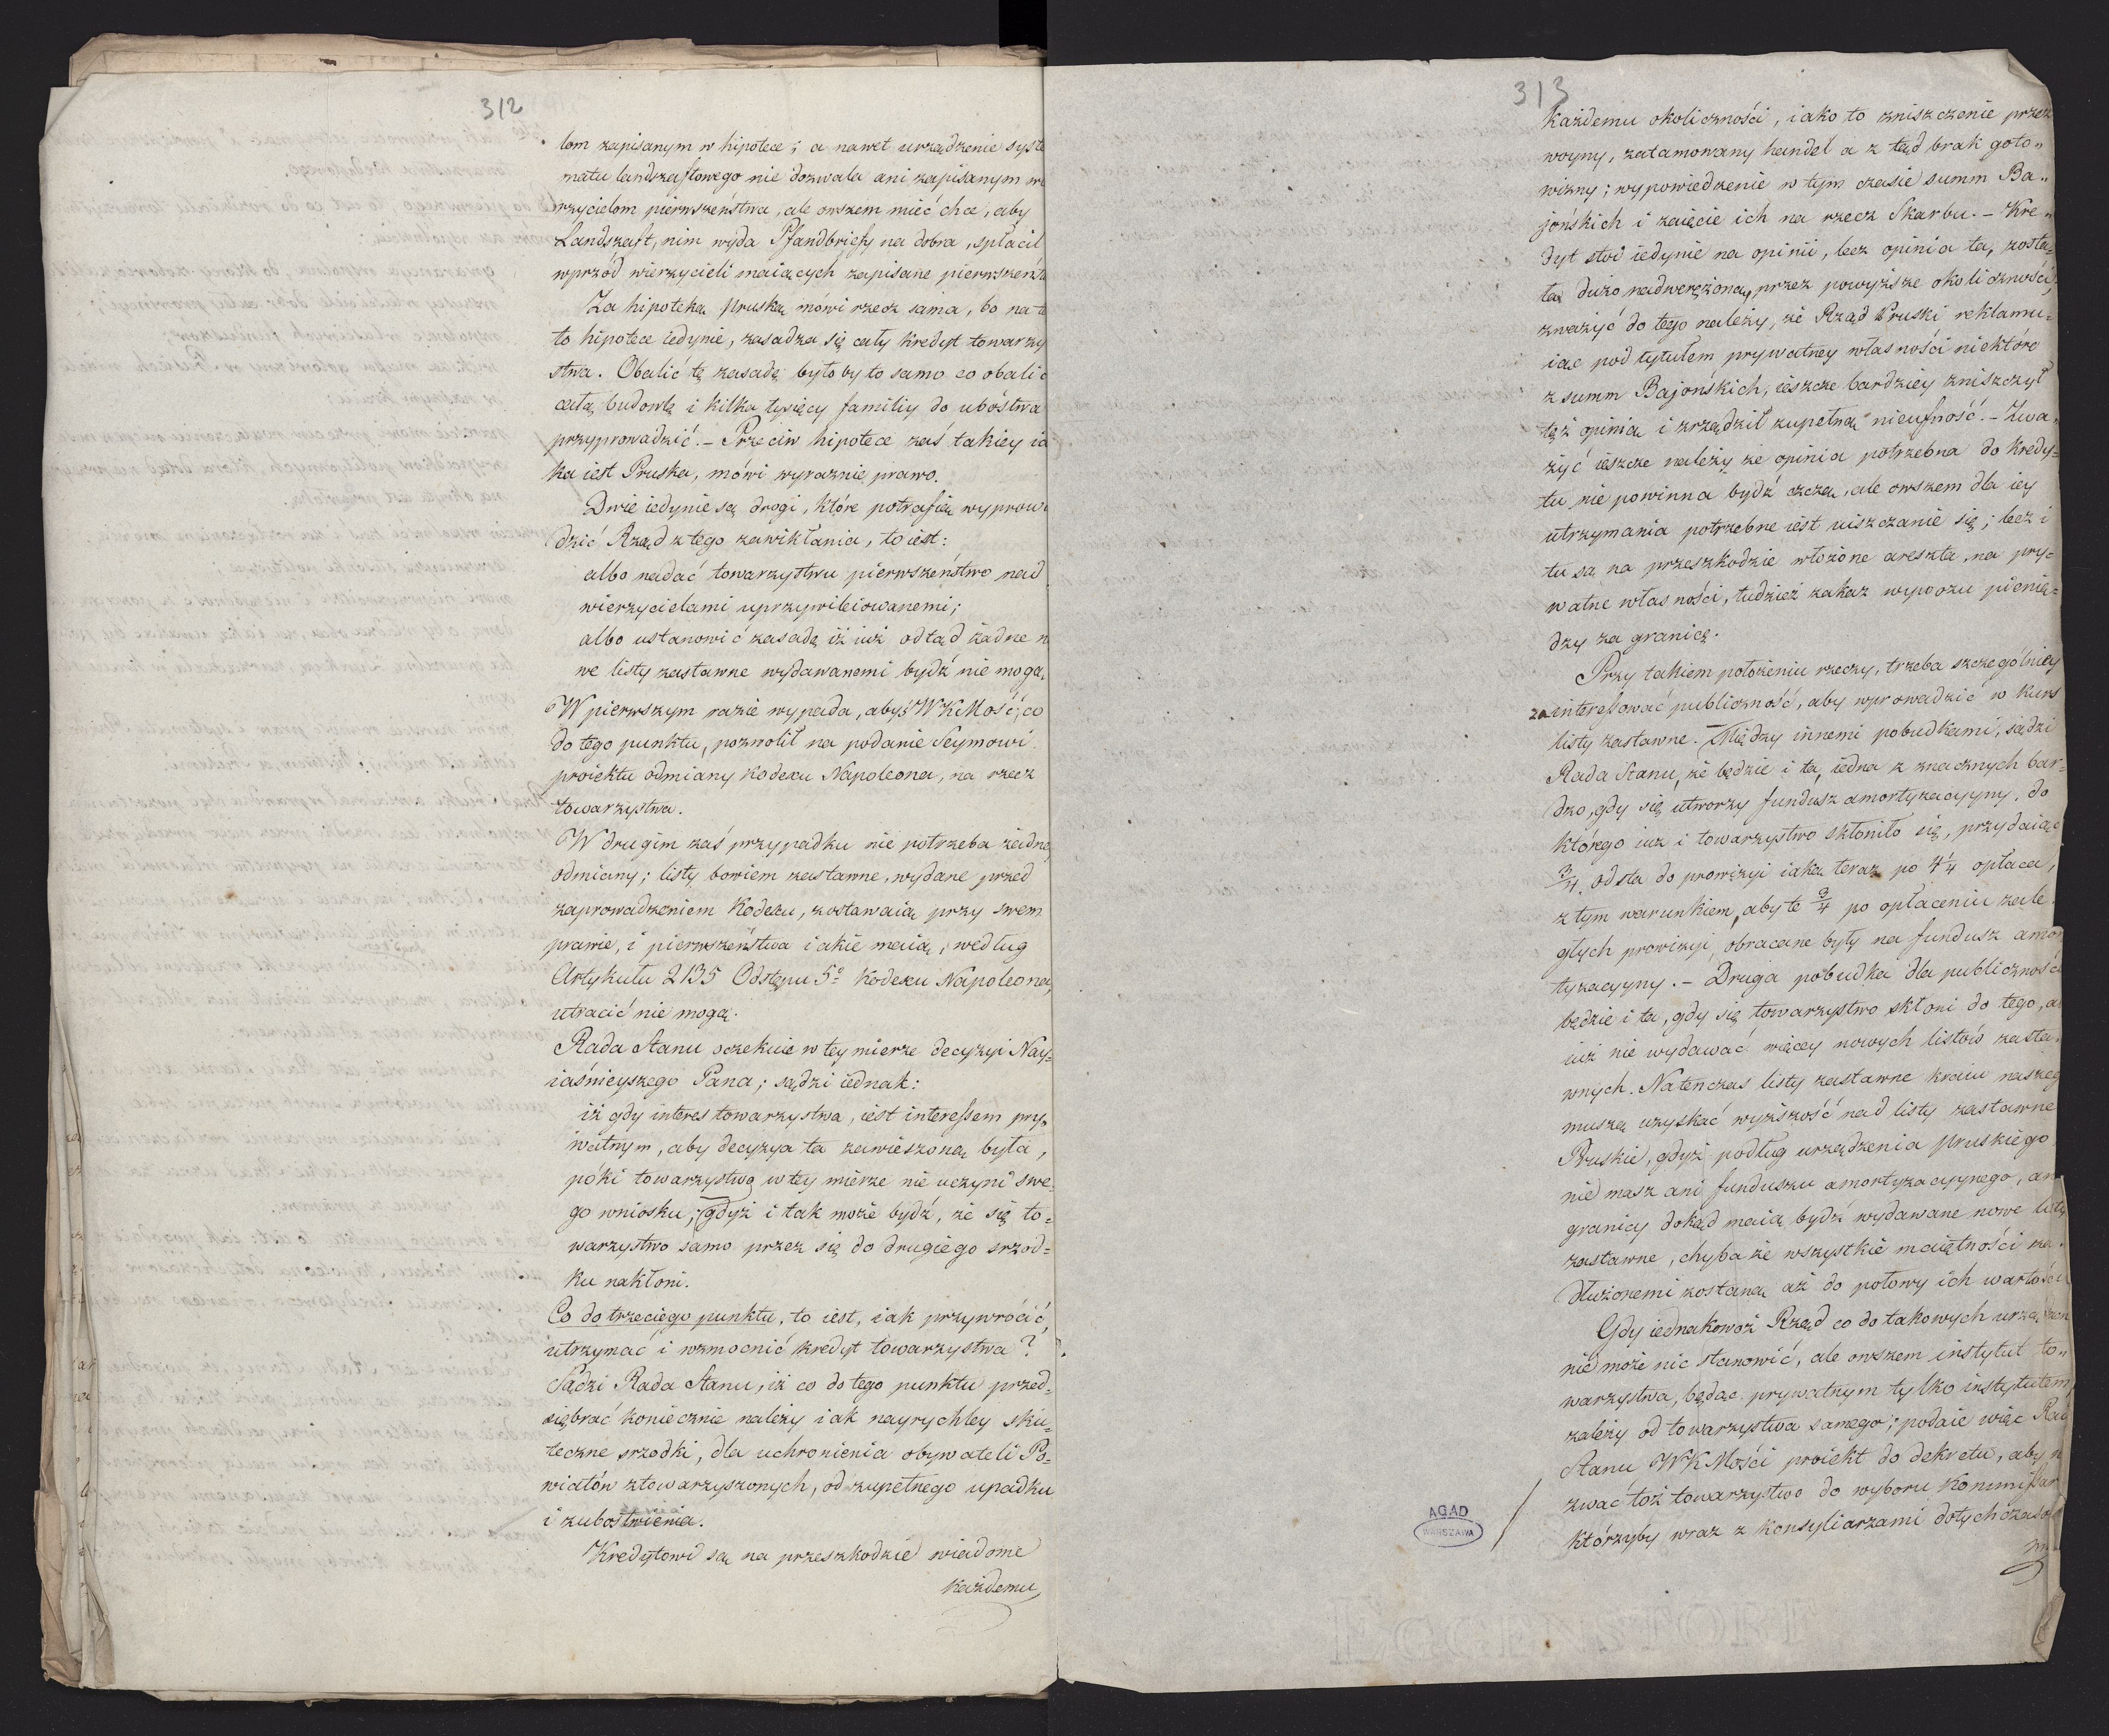 312
lom zapisanym w hipotece; a nawet urządzenie syste
matu landszaftowego nie dozwala ani zapisanym wie
rzycielom pierwszeństwa, ale owszem mieć chce, aby
Landszaft, nim wyda Pfandbriefy na dobra, spłacił
wprzód wierzycieli maiących zapisane pierwszeństw
Za hipoteką Pruską mówi rzecz sama, bo na
to hipotece iedynie, zasadza się cały kredyt towarzy
stwa. Obalić tę zasadę byłoby to samo co obalić
całą budowlę i kilka tysięcy familiy do ubóstwa
przyprowadzić. – Przeciw hipotece zaś takiey ia
ka iest Pruska, mówi wyraznie prawo.
Dwie iedynie są drogi, które potrafią wyprowa
dzić Rząd z tego zawikłania, to iest:
albo nadać towarzystwu pierwszeństwo nad
wierzycielami uprzywileiowanemi;
albo ustanowić zasadę iż iuż odtąd żadne no
we listy zastawne wydawanemi bydź nie mogą.
W pierwszym razie wypada, abyś WKMość, co
do tego punktu, pozwolił na podanie Seymowi
proiektu odmiany Kodexu Napoleona, na rzecz
towarzystwa.
W drugim zaś przypadku nie potrzeba żadne
odmiany; listy bowiem zastawne, wydane przed
zaprowadzeniem Kodexu, zostawaią przy swem
prawie, i pierwszeństwa iakie maią, według
Artykułu 2135 Odstępu 5º Kodexu Napoleona,
utracić nie mogą.
Rada Stanu oczekuie w tey mierze decyzyi Nay=
iaśnieyszego Pana; sądzi iednak:
iż gdy interes towarzystwa, iest interessem pry„
watnym, aby decyzya ta zawieszoną była,
póki towarzystwo w tey mierze nie uczyni swe=
go wniosku, gdyż i tak może bydź, że się to=
warzystwo samo przez się do drugiego srzod=
ku nakłoni.
Co do trzeciego punktu, to iest, iak przywrócić,
utrzymać i wzmocnić kredyt towarzystwa?
Sądzi Rada Stanu, iż co do tego punktu przed=
siębrać koniecznie należy iak nayrychley sku=
teczne srzodki, dla uchronienia obywateli Po=
wiatów ztowarzyszonych, od zupełnego upadku
i zubostwienia.
Kredytowi są na przeszkodzie wiadome
każdemu
313
każdemu okoliczności, iako to zniszczenie przez
woyny, zatamowany handel a z tąd brak goto„
wizny; wypowiedzenie w tym czasie summ Ba„
jońskich i zaięcie ich na rzecz Skarbu. – Kre„
dyt stoi iedynie na opinii, lecz opinia ta, zosta=
ła dużo nadwerężoną, przez powyższe okoliczności;
zważyć do tego należy, że Rząd Pruski reklamu=
iąc pod tytułem prywatney własności niektóre
z summ Bajońskich, ieszcze bardziey zniszczył
tęż opinią i zrządził zupełną nieufność. – Zwa„
żyć ieszcze należy że opinia potrzebna do kredy=
tu nie powinna bydź czczą, ale owszem dla iey
utrzymania potrzebne iest uiszczanie się; lecz i
tu są na przeszkodzie włożone areszta na pry=
watne własności, tudzież zakaz wywozu pienię=
dzy za granicę.
Przy takiem położeniu rzeczy, trzeba szczególniey
za interessować publiczność, aby wprowadzić w kurs
listy zastawne. Między innemi pobudkami, sądzi
Rada Stanu, że będzie i ta, iedna z znacznych bar=
dzo, gdy się utworzy fundusz amortyzacyyny, do
którego iuż i towarzystwo skłoniło się, przydaiąc
3/4 od sta do prowizyi iaką teraz po 4 1/4 opłaca,
z tym warunkiem, aby te 3/4 po opłaceniu zale
głych prowizyi, obracane były na fundusz amor
tyzacyyny. – Druga pobudka dla publiczności
będzie i ta, gdy się towarzystwo skłoni do tego, a
iuż nie wydawać więcey nowych listów zasta„
wnych. Natenczas listy zastawne kraiu naszeg
muszą uzyskać wyższość nad listy zastawne
Pruskie, gdyż podług urządzenia Pruskiego
nie masz ani funduszu amortyzacyynego, an
granicy dokąd maią bydź wydawane nowe listy
zastawne, chyba że wszystkie maiętności za
dłużonemi zostaną aż do połowy ich wartości
Gdy iednakowoż Rząd co do takowych urządzen
nie może nic stanowić, ale owszem instytut to„
warzystwa, będąc prywatnym tylko instytutem
zależy od towarzystwa samego; podaie więc Rad
Stanu WKMości proiekt do dekretu, aby w
zwać toż towarzystwo do wyboru Kommissar
którzyby wraz z Konsyliarzami dotychczaso
AGAD
WARSZAWA